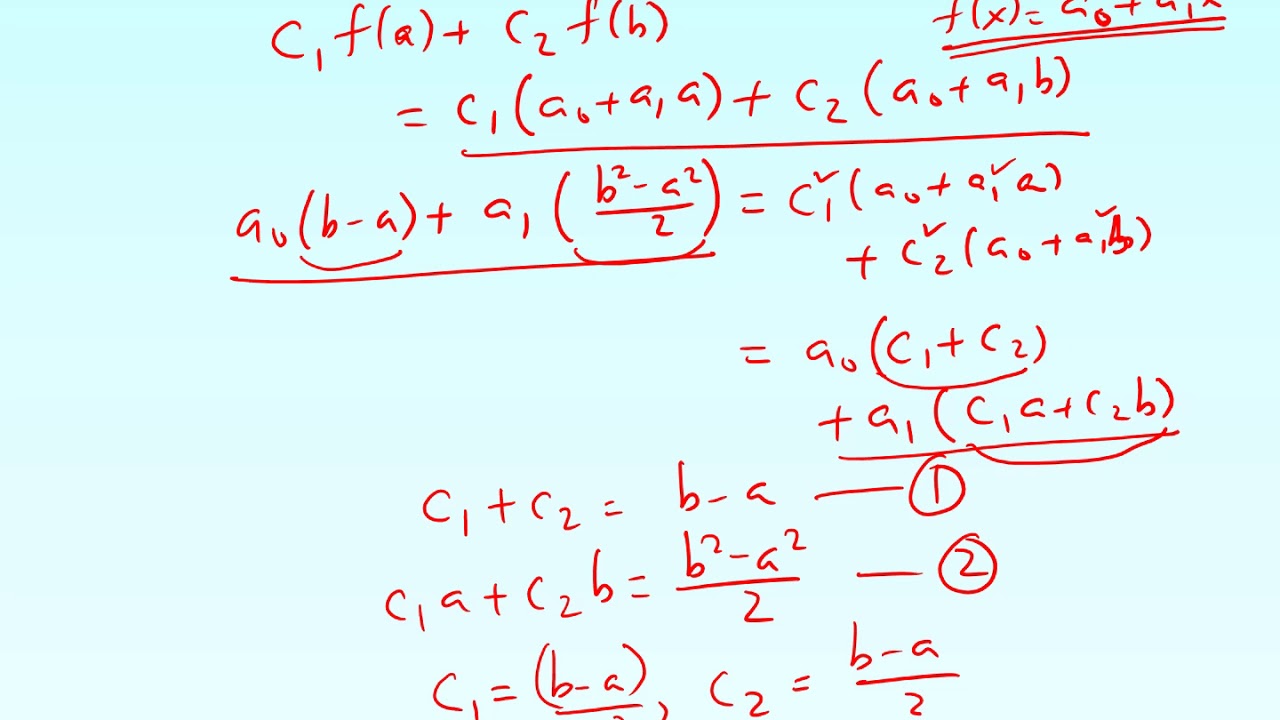 C₁ f(a) + C₂ f(b)
f(x) = a₀ + a₁x
= C₁(a₀ + a₁a) + C₂(a₀ + a₁b)
a₀(b-a) + a₁((b²-a²)/2) = C₁(a₀ + a₁a)
+ C₂(a₀ + a₁b)
= a₀(C₁ + C₂)
+ a₁(C₁a + C₂b)
C₁ + C₂ = b-a —— ①
C₁a + C₂b = (b²-a²)/2 — ②
C₁ = (b-a)/2, C₂ = (b-a)/2